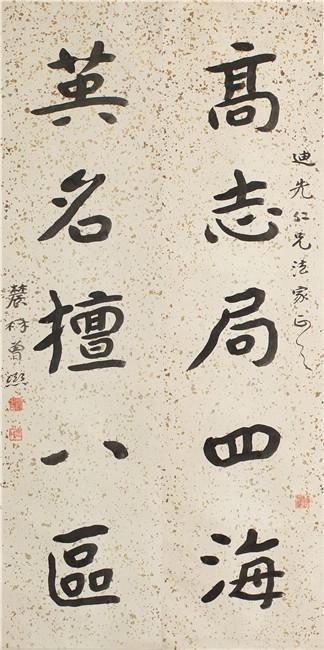 迪先仁兄法家正之
高志局四海
英名擅八區
農髯曾熙